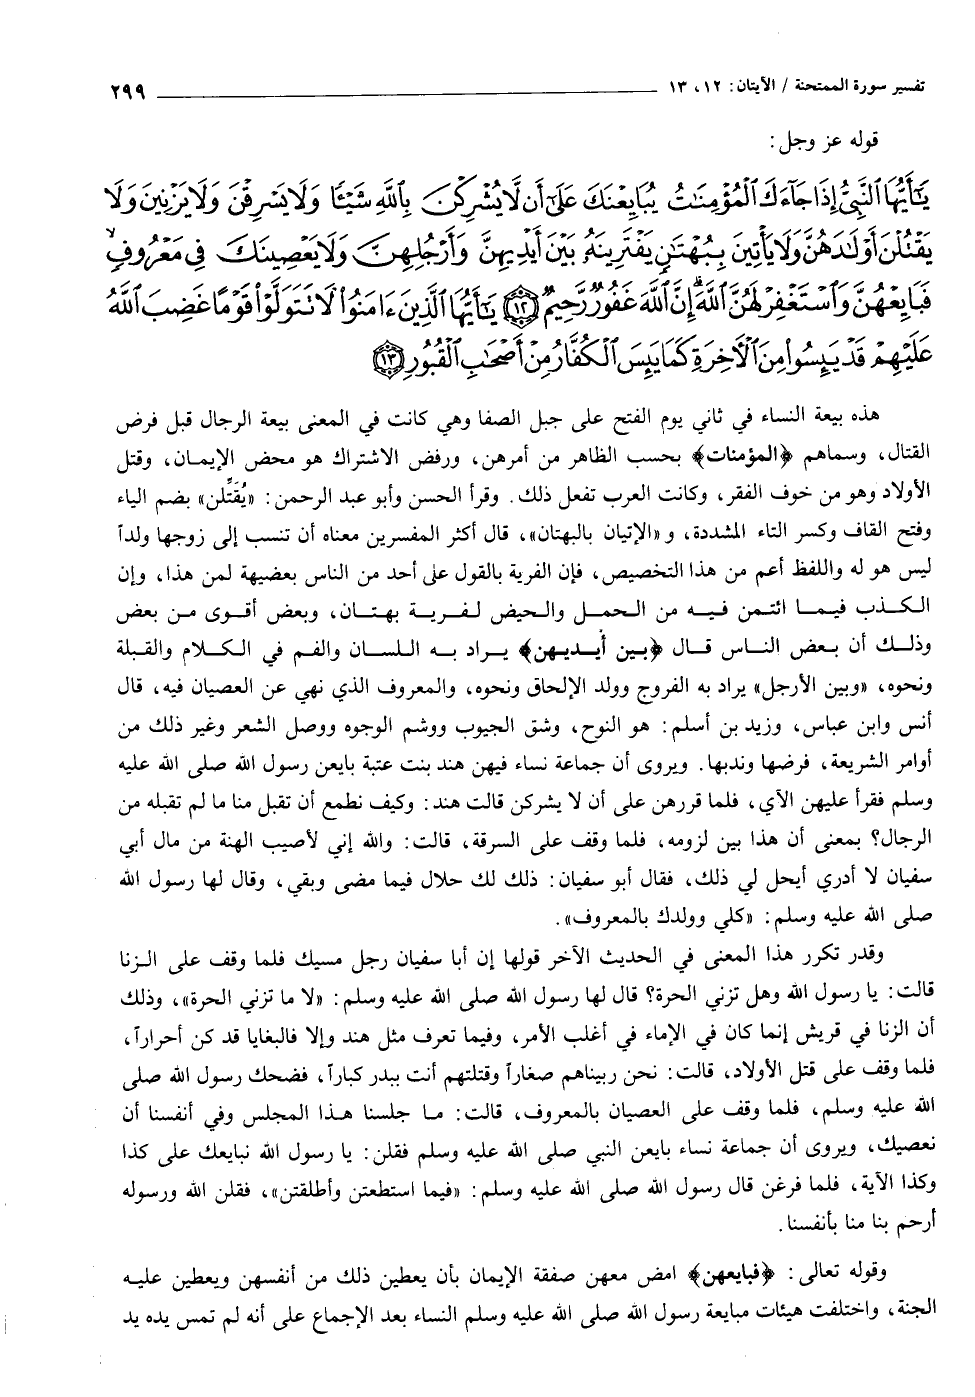 تفسير سورة الممتحنة / الآيتان: ١٢، ١٣ ــــــــــــــــ ٢٩٩
قوله عز وجل:
يَٰٓأَيُّهَا ٱلنَّبِىُّ إِذَا جَآءَكَ ٱلْمُؤْمِنَٰتُ يُبَايِعْنَكَ عَلَىٰٓ أَن لَّا يُشْرِكْنَ بِٱللَّهِ شَيْـًٔا وَلَا يَسْرِقْنَ وَلَا يَزْنِينَ وَلَا
يَقْتُلْنَ أَوْلَٰدَهُنَّ وَلَا يَأْتِينَ بِبُهْتَٰنٍ يَفْتَرِينَهُۥ بَيْنَ أَيْدِيهِنَّ وَأَرْجُلِهِنَّ وَلَا يَعْصِينَكَ فِى مَعْرُوفٍ ۙ
فَبَايِعْهُنَّ وَٱسْتَغْفِرْ لَهُنَّ ٱللَّهَ ۖ إِنَّ ٱللَّهَ غَفُورٌ رَّحِيمٌ ﴿١٢﴾ يَٰٓأَيُّهَا ٱلَّذِينَ ءَامَنُوا۟ لَا تَتَوَلَّوْا۟ قَوْمًا غَضِبَ ٱللَّهُ
عَلَيْهِمْ قَدْ يَئِسُوا۟ مِنَ ٱلْءَاخِرَةِ كَمَا يَئِسَ ٱلْكُفَّارُ مِنْ أَصْحَٰبِ ٱلْقُبُورِ ﴿١٣﴾
هذه بيعة النساء في ثاني يوم الفتح على جبل الصفا وهي كانت في المعنى بيعة الرجال قبل فرض
القتال، وسماهم ﴿المؤمنات﴾ بحسب الظاهر من أمرهن، ورفض الاشتراك هو محض الإيمان، وقتل
الأولاد وهو من خوف الفقر، وكانت العرب تفعل ذلك. وقرأ الحسن وأبو عبد الرحمن: «يُقَتِّلن» بضم الياء
وفتح القاف وكسر التاء المشددة، و«الإتيان بالبهتان»، قال أكثر المفسرين معناه أن تنسب إلى زوجها ولداً
ليس هو له واللفظ أعم من هذا التخصيص، فإن الفرية بالقول على أحد من الناس بعضيهة لمن هذا، وإن
الكذب فيما ائتمن فيه من الحمل والحيض لفرية بهتان، وبعض أقوى من بعض
وذلك أن بعض الناس قال ﴿بين أيديهن﴾ يراد به اللسان والفم في الكلام والقبلة
ونحوه، «وبين الأرجل» يراد به الفروج وولد الإلحاق ونحوه، والمعروف الذي نهي عن العصيان فيه، قال
أنس وابن عباس، وزيد بن أسلم: هو النوح، وشق الجيوب ووشم الوجوه ووصل الشعر وغير ذلك من
أوامر الشريعة، فرضها وندبها. ويروى أن جماعة نساء فيهن هند بنت عتبة بايعن رسول الله صلى الله عليه
وسلم فقرأ عليهن الآي، فلما قررهن على أن لا يشركن قالت هند: وكيف نطمع أن تقبل منا ما لم تقبله من
الرجال؟ بمعنى أن هذا بين لزومه، فلما وقف على السرقة، قالت: والله إني لأصيب الهنة من مال أبي
سفيان لا أدري أيحل لي ذلك، فقال أبو سفيان: ذلك لك حلال فيما مضى وبقي، وقال لها رسول الله
صلى الله عليه وسلم: «كلي وولدك بالمعروف».
وقدر تكرر هذا المعنى في الحديث الآخر قولها إن أبا سفيان رجل مسيك فلما وقف على الزنا
قالت: يا رسول الله وهل تزني الحرة؟ قال لها رسول الله صلى الله عليه وسلم: «لا ما تزني الحرة»، وذلك
أن الزنا في قريش إنما كان في الإماء في أغلب الأمر، وفيما تعرف مثل هند وإلا فالبغايا قد كن أحراراً،
فلما وقف على قتل الأولاد، قالت: نحن ربيناهم صغاراً وقتلتهم أنت ببدر كباراً، فضحك رسول الله صلى
الله عليه وسلم، فلما وقف على العصيان بالمعروف، قالت: ما جلسنا هذا المجلس وفي أنفسنا أن
نعصيك، ويروى أن جماعة نساء بايعن النبي صلى الله عليه وسلم فقلن: يا رسول الله نبايعك على كذا
وكذا الآية، فلما فرغن قال رسول الله صلى الله عليه وسلم: «فيما استطعتن وأطلقتن»، فقلن الله ورسوله
أرحم بنا منا بأنفسنا.
وقوله تعالى: ﴿فبايعهن﴾ امض معهن صفقة الإيمان بأن يعطين ذلك من أنفسهن ويعطين عليه
الجنة، واختلفت هيئات مبايعة رسول الله صلى الله عليه وسلم النساء بعد الإجماع على أنه لم تمس يده يد